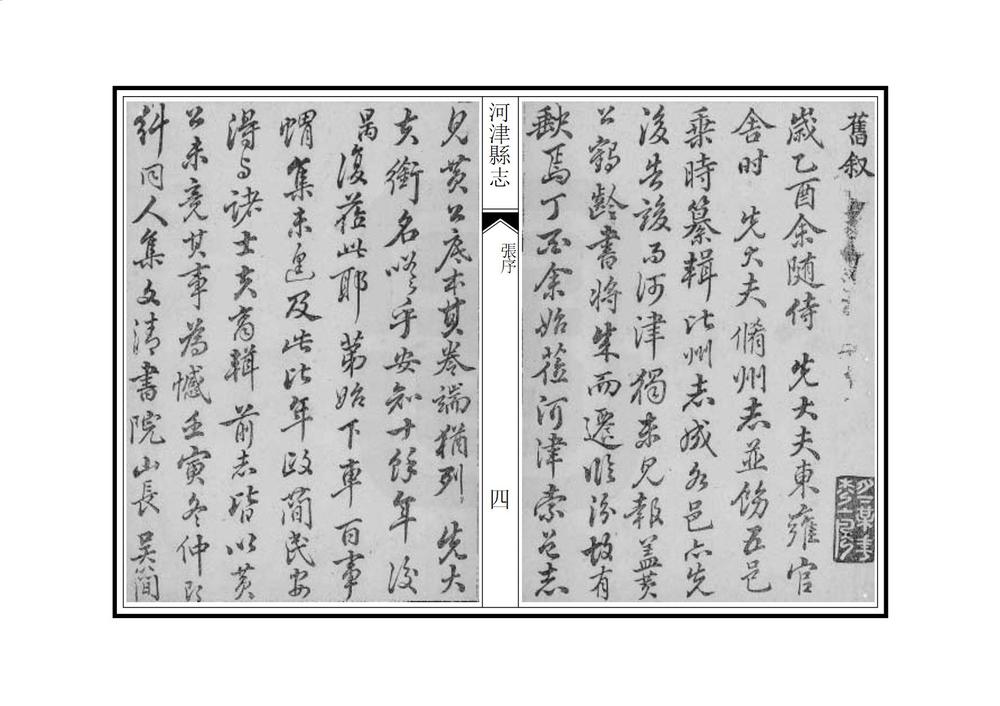 舊叙
歲乙酉余随侍 先大夫東雍官
舍时 先大夫脩州志並飭五邑
乗時纂輯比州志成各邑亦先
後告竣而河津獨未見報盖黄
公鶴齡書将成而遷臨汾故有
缺焉丁酉余始蒞河津索邑志
河津縣志
張序
四
見黄公底本其卷端猶列 先大
夫衔名嗟乎安知十餘年後
復蒞此耶第始下車百事
蝟集未遑及此比年政簡民安
得与諸士夫商輯前志皆以黄
公未竟其事為憾壬寅冬仲
糾同人集文清書院山長吴簡